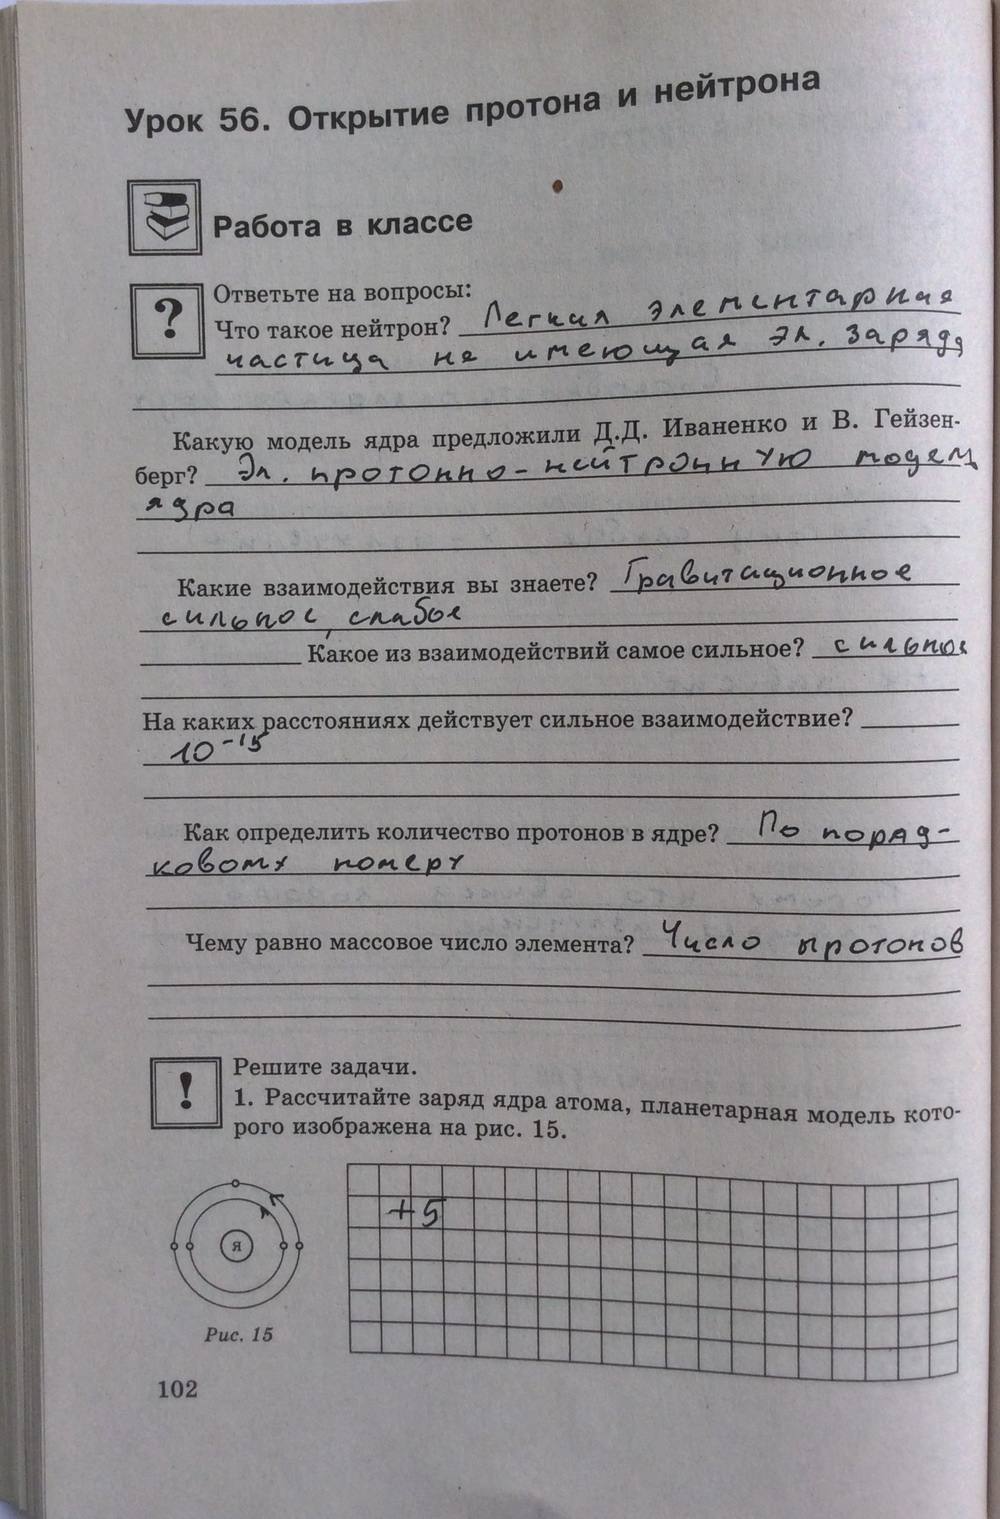 Урок 56. Открытие протона и нейтрона
Работа в классе
?
Ответьте на вопросы:
Что такое нейтрон? Легкая элементарная
частица не имеющая эл. заряда
Какую модель ядра предложили Д.Д. Иваненко и В. Гейзен-
берг? Эл. протонно-нейтронную модел
ядра
Какие взаимодействия вы знаете? Гравитационное
сильное, слабое
Какое из взаимодействий самое сильное? сильное
На каких расстояниях действует сильное взаимодействие?
10⁻¹⁵
Как определить количество протонов в ядре? По поряд-
ковому номеру
Чему равно массовое число элемента? Число протонов
!
Решите задачи.
1. Рассчитайте заряд ядра атома, планетарная модель кото-
рого изображена на рис. 15.
+5
Я
Рис. 15
102